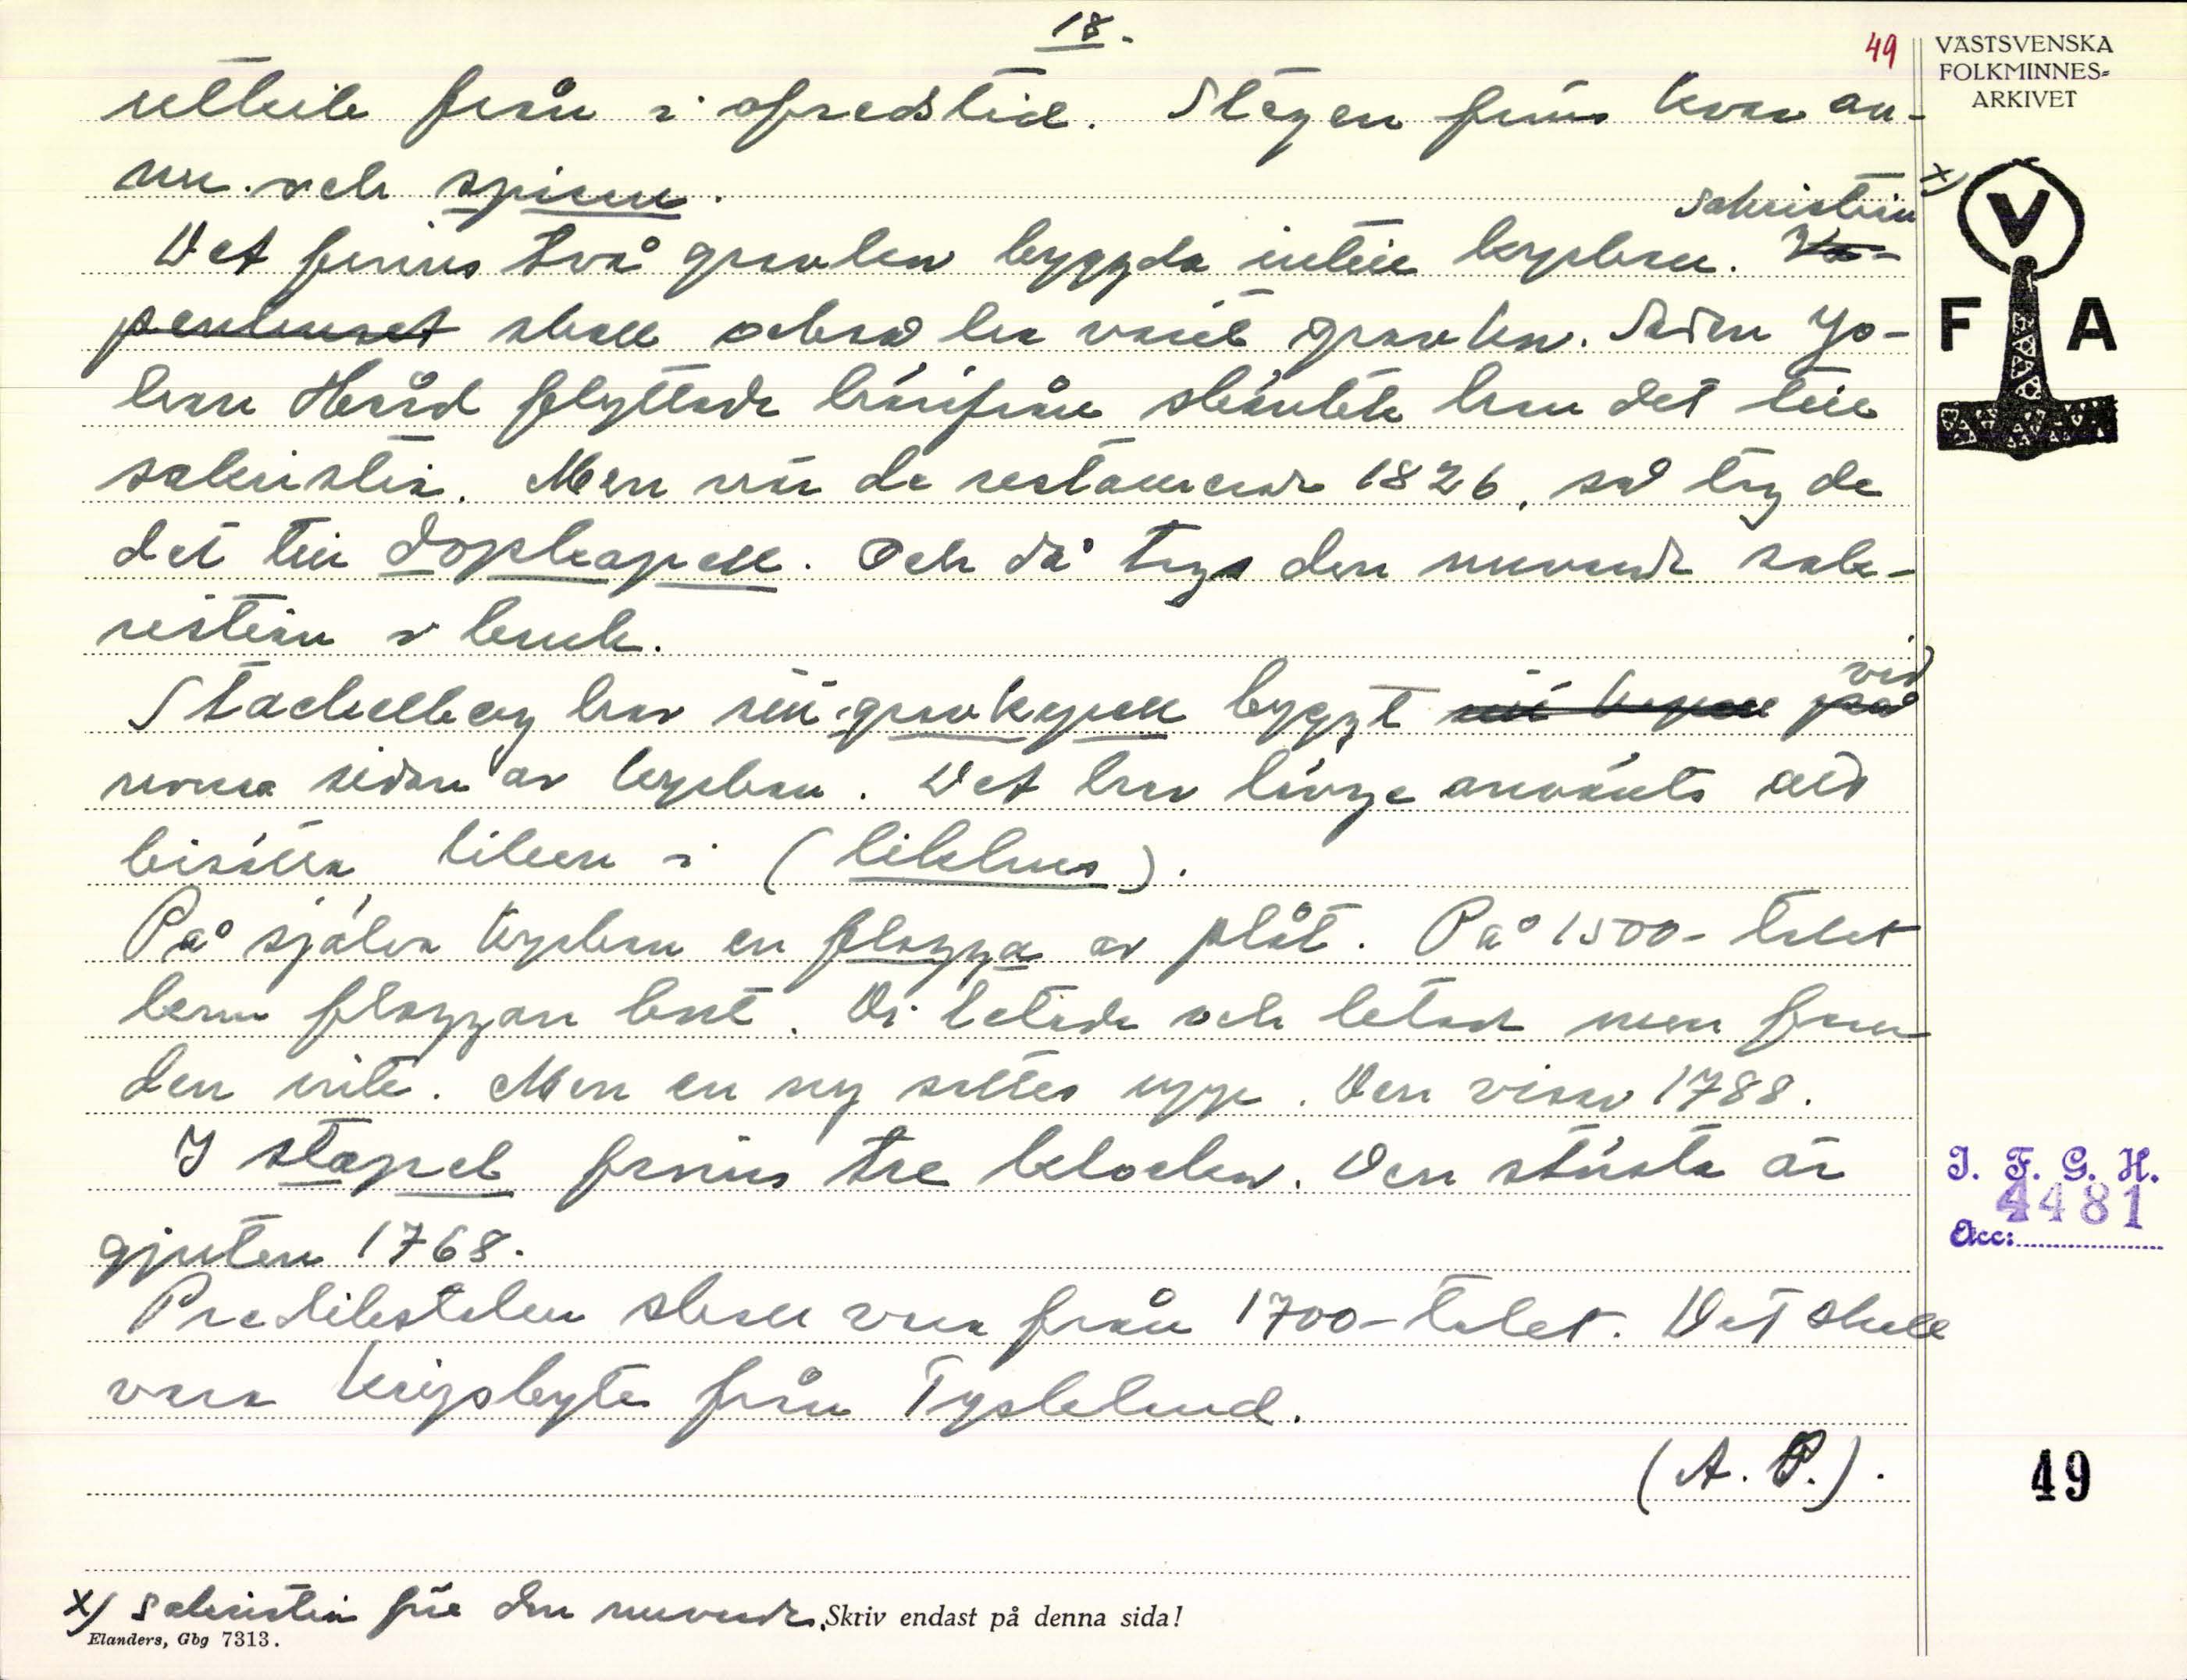 18.
49
VÄSTSVENSKA
FOLKMINNES-
ARKIVET
från i ofredstid. Stegen finns kvar än-
nu och spisen.
sakristian x)
Det finns två gravkor byggda intill kyrkan. Va-
penhuset skall också ha varit gravkor. Sedan Jo-
han Hård flyttade härifrån skänkte han det till
sakristia. Men när de restaurerade 1826, så tog de
det till dopkapell. Och då togs den nuvarande sak-
ristian i bruk.
vid
Stackelberg har sitt gravkapell byggt sitt kapell på
norra sidan av kyrkan. Det har länge använts att
bisätta liken i (likhus).
På själva kyrkan en flagga av plåt. På 1500-talet
kom flaggan bort. De letade och letade men fann
den inte. Men en ny sattes upp. Den visar 1788.
I stapel finns tre klockor. Den största är
gjuten 1768.
Predikstolen skall vara från 1700-talet. Det skall
vara krigsbyte från Tyskland.
(A. P.).
x) sakristia före den nuvarande. Skriv endast på denna sida!
Elanders, Gbg 7313.
V
F A
I. F. G. H.
4481
Acc:
49